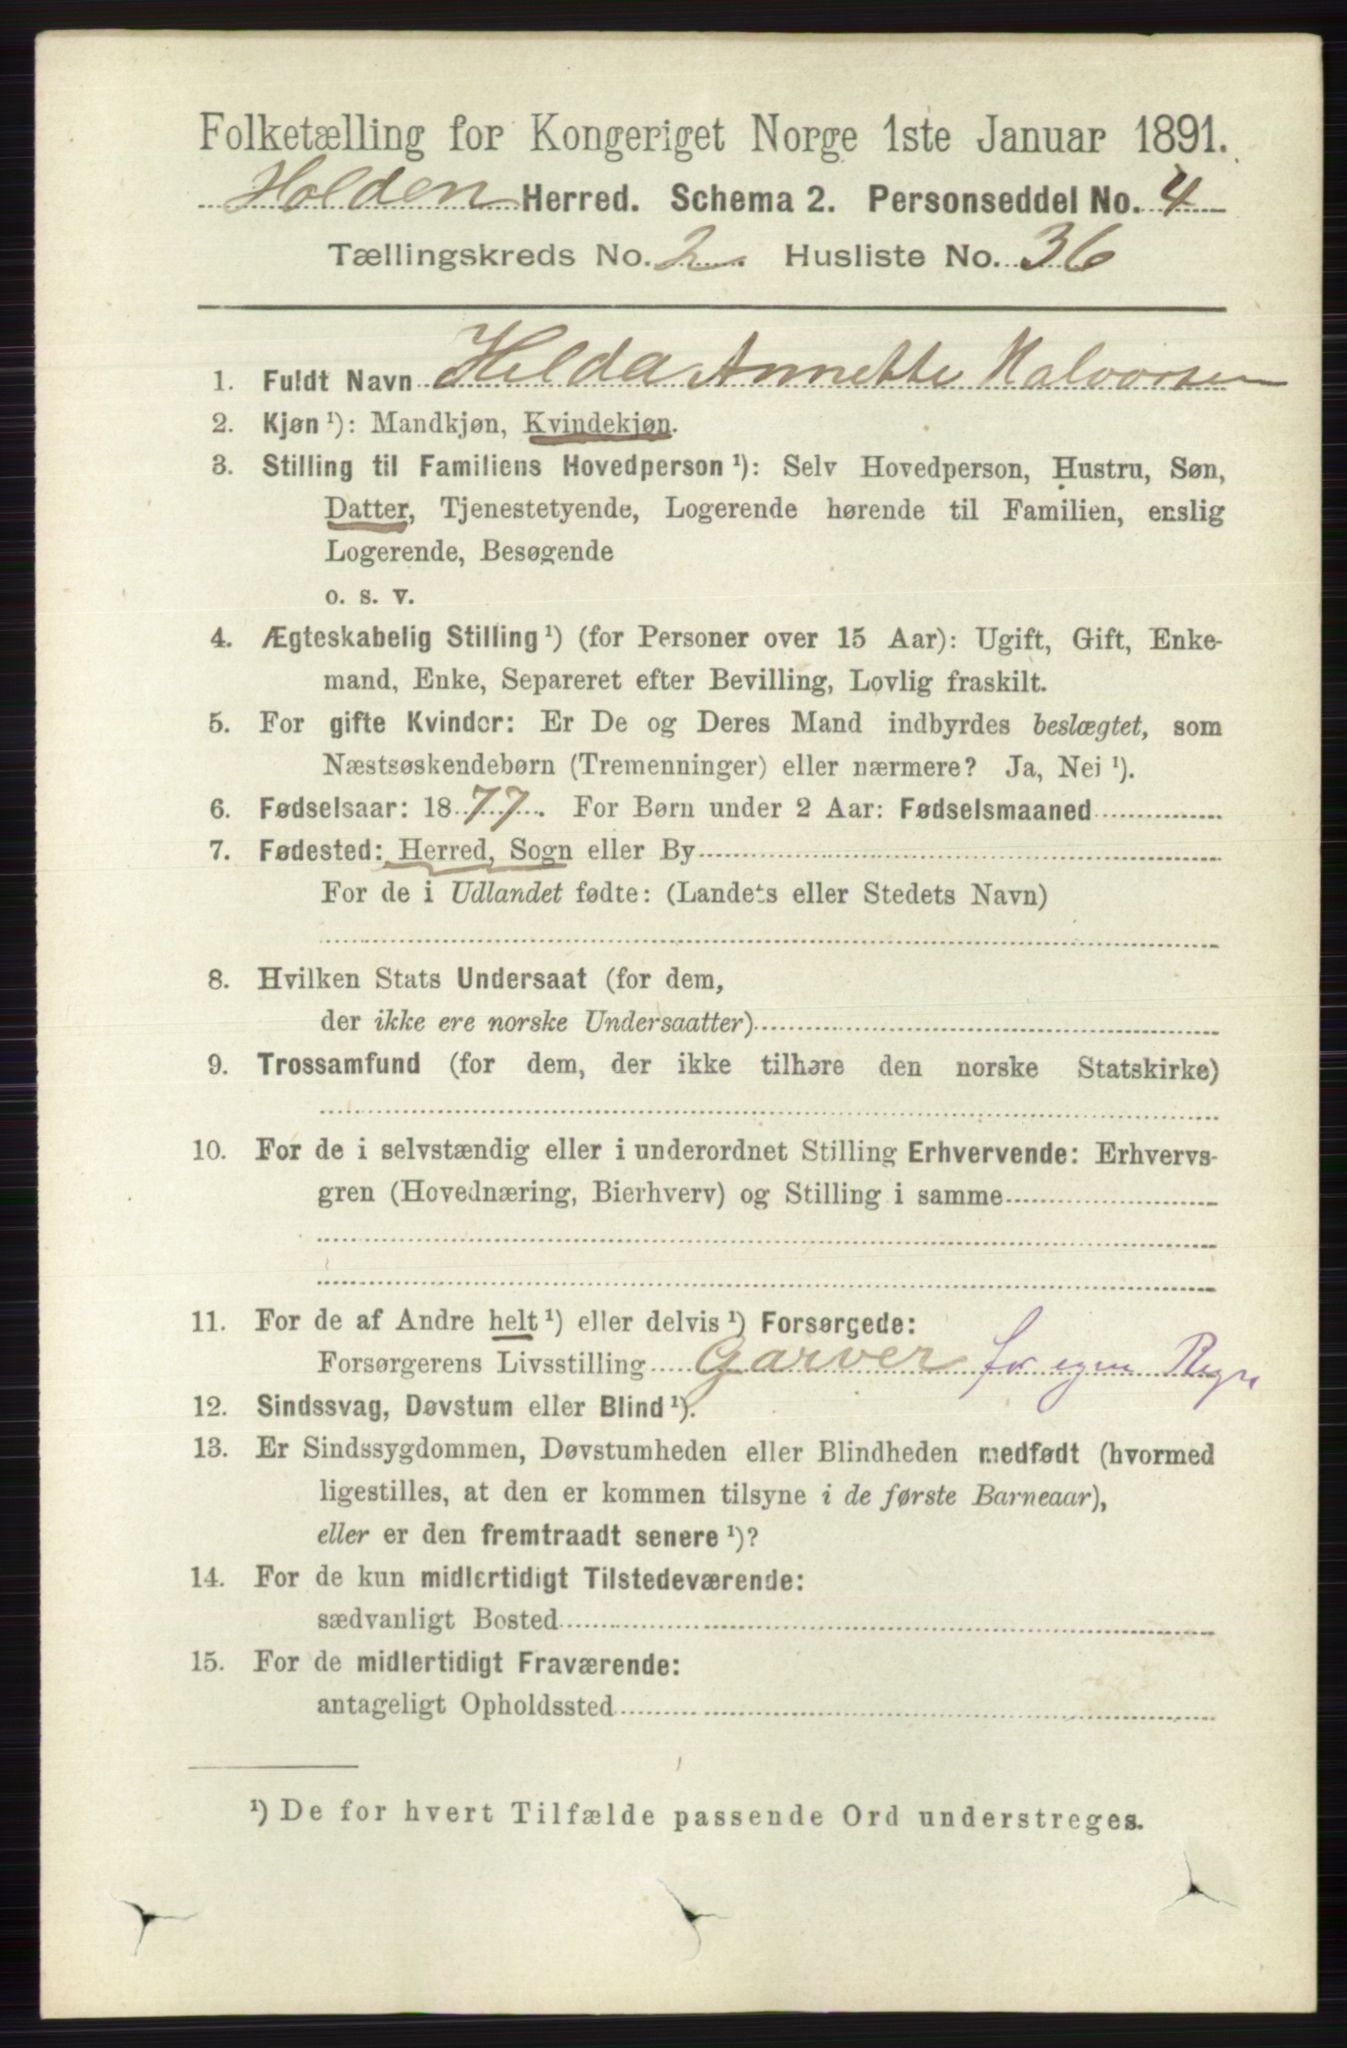 Folketælling for Kongeriget Norge 1ste Januar 1891.
Holden Herred. Schema 2. Personseddel No. 4
Tællingskreds No. 2. Husliste No. 36
1. Fuldt Navn Helda Annette Halvorsen
2. Kjøn ¹): Mandkjøn, Kvindekjøn.
3. Stilling til Familiens Hovedperson ¹): Selv Hovedperson, Hustru, Søn,
Datter, Tjenestetyende, Logerende hørende til Familien, enslig
Logerende, Besøgende
o. s. v.
4. Ægteskabelig Stilling ¹) (for Personer over 15 Aar): Ugift, Gift, Enke-
mand, Enke, Separeret efter Bevilling, Lovlig fraskilt.
5. For gifte Kvinder: Er De og Deres Mand indbyrdes beslægtet, som
Næstsøskendebørn (Tremenninger) eller nærmere? Ja, Nei ¹).
6. Fødselsaar: 1877. For Børn under 2 Aar: Fødselsmaaned
7. Fødested: Herred, Sogn eller By
For de i Udlandet fødte: (Landets eller Stedets Navn)
8. Hvilken Stats Undersaat (for dem,
der ikke ere norske Undersaatter)
9. Trossamfund (for dem, der ikke tilhøre den norske Statskirke)
10. For de i selvstændig eller i underordnet Stilling Erhvervende: Erhvervs-
gren (Hovednæring, Bierhverv) og Stilling i samme
11. For de af Andre helt ¹) eller delvis ¹) Forsørgede:
Forsørgerens Livsstilling Garver for egen Regn
12. Sindssvag, Døvstum eller Blind ¹).
13. Er Sindssygdommen, Døvstumheden eller Blindheden medfødt (hvormed
ligestilles, at den er kommen tilsyne i de første Barneaar),
eller er den fremtraadt senere ¹)?
14. For de kun midlertidigt Tilstedeværende:
sædvanligt Bosted
15. For de midlertidigt Fraværende:
antageligt Opholdssted
¹) De for hvert Tilfælde passende Ord understreges.